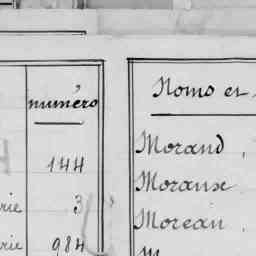 numéro
144
rie 3
rie 984
Noms et
Morand,
Moranse
Moreau,